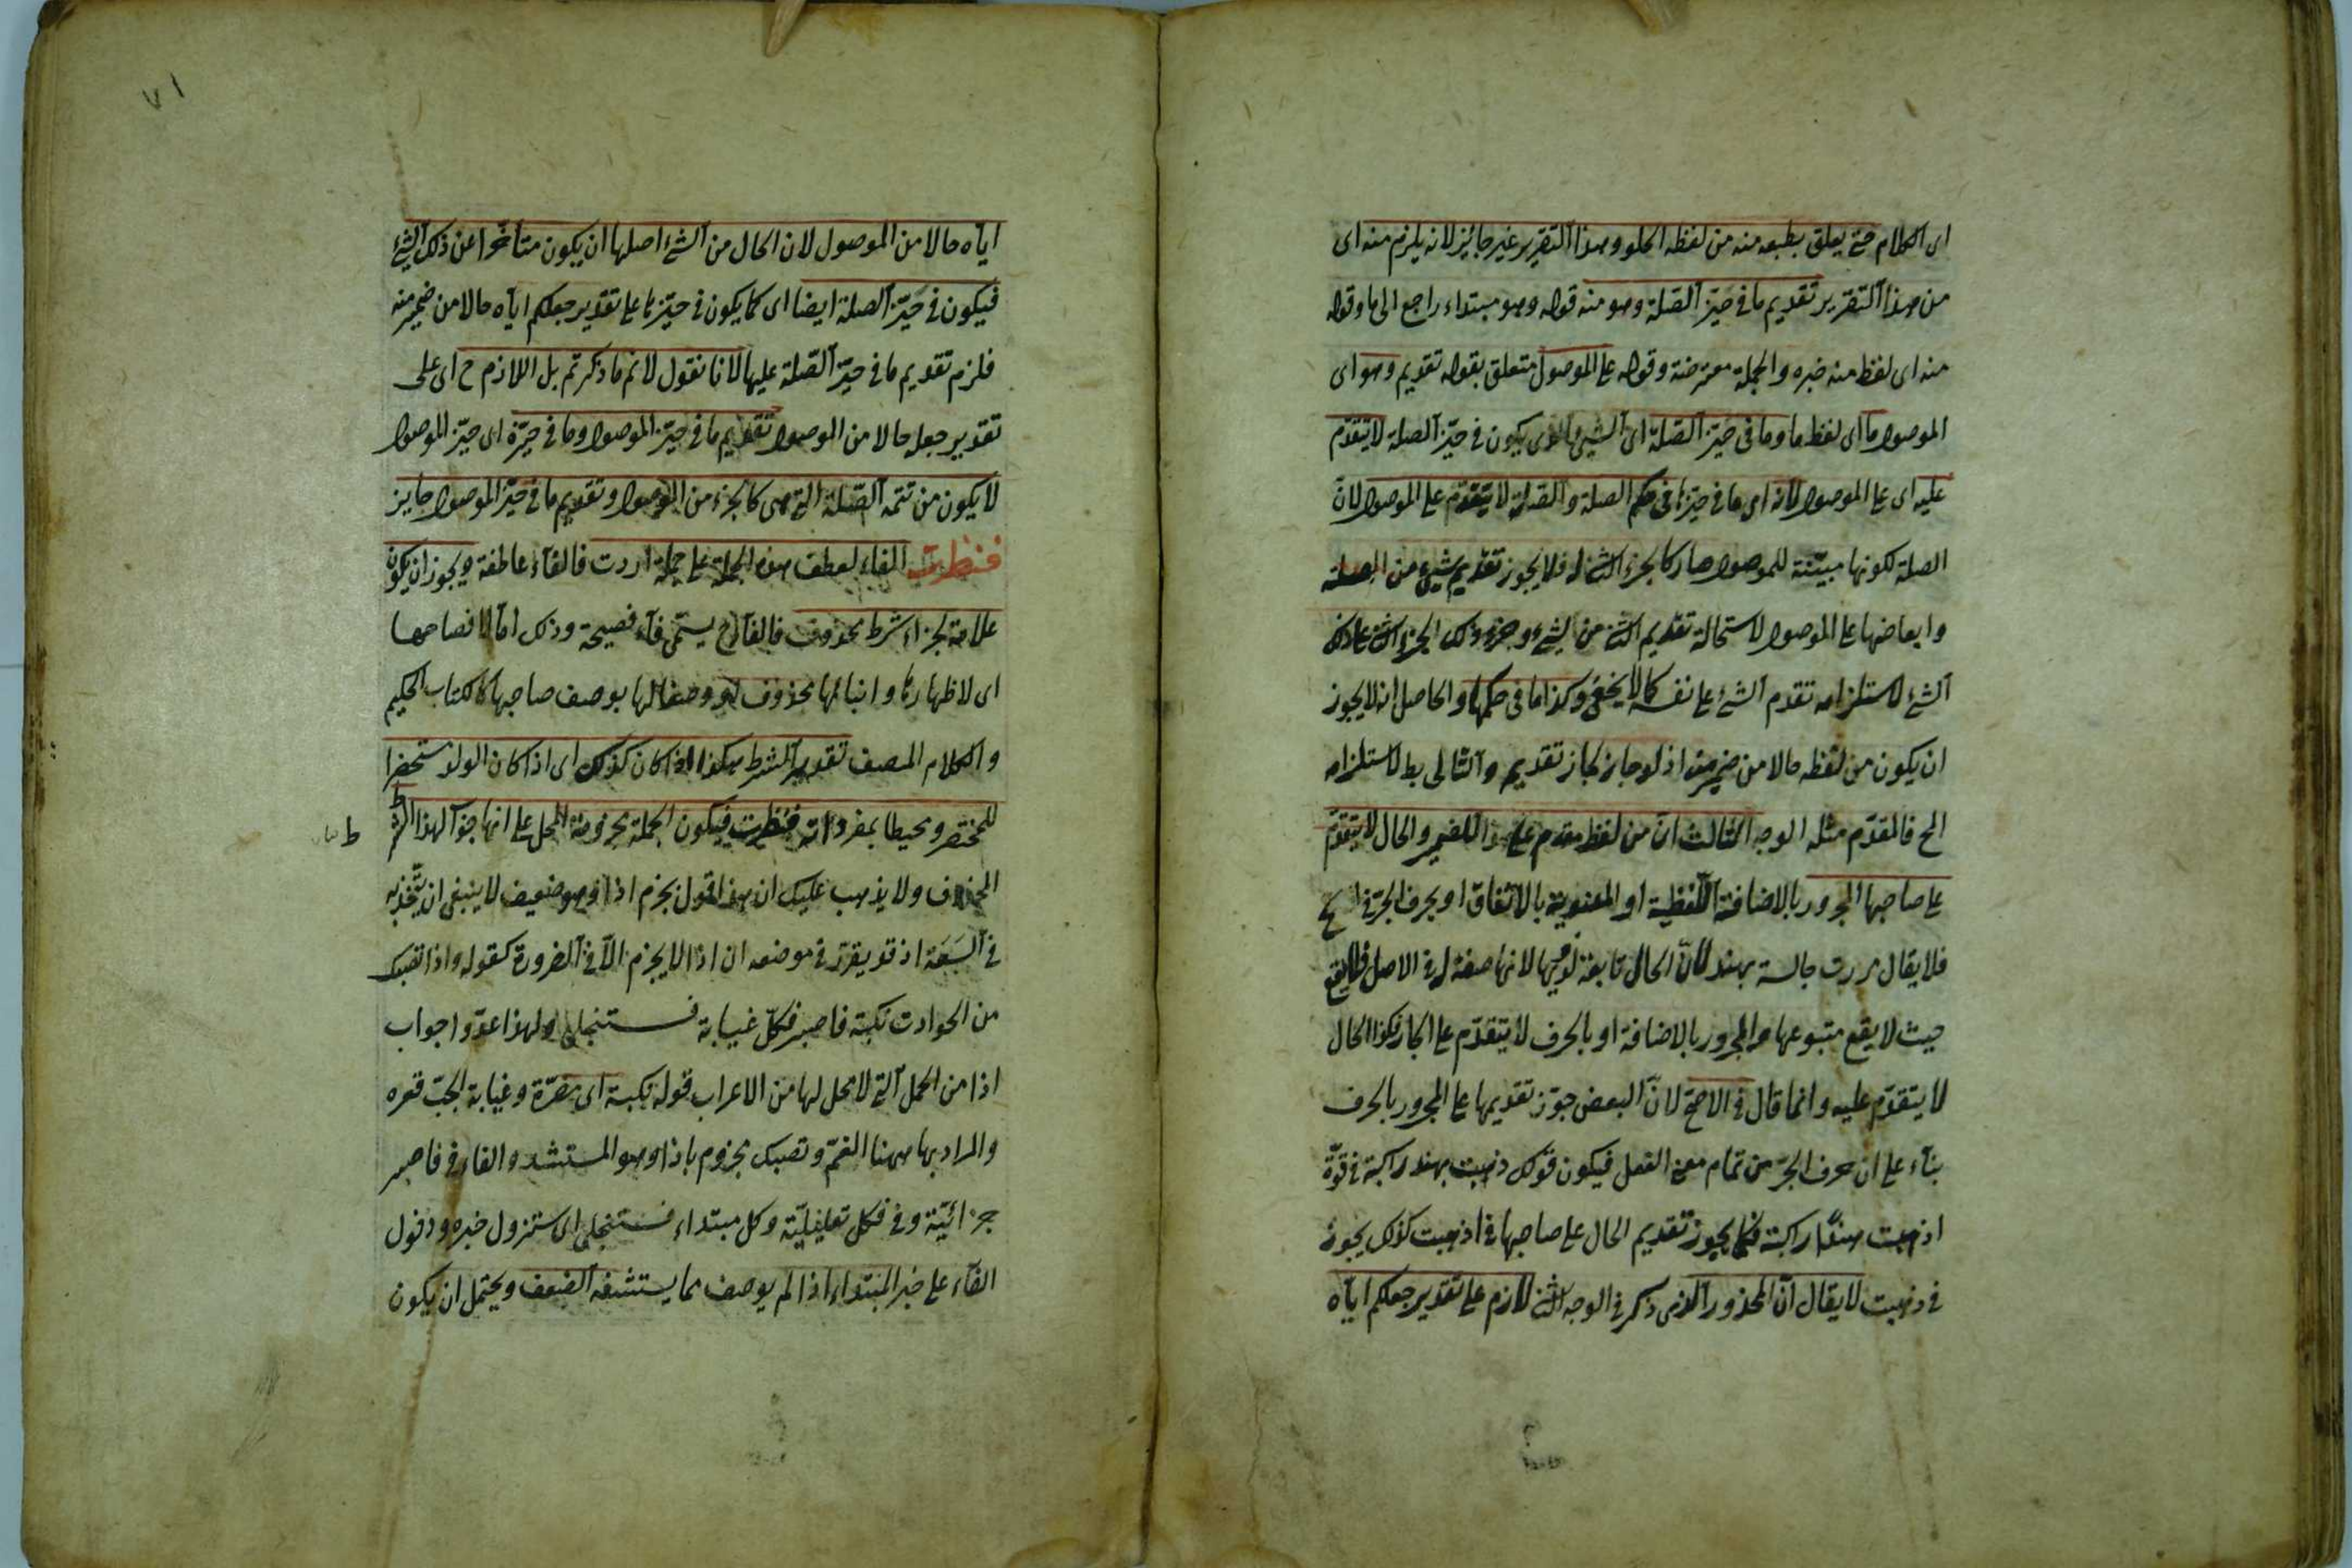 اى الكلام حتى يعلق بطبعه منه من لفظه الحلو وهذا التقرير غير جائز لانه يلزم منه اى
من هذا التقرير تقديم ما فى حيّز الصّلة وهو منه قوله وهو مبتداء راجع الى ما وقوله
منه اى لفظ منه خبره والجملة معترضة وقوله على الموصول متعلق بقوله تقديم وهو اى
الموصول ما اى لفظ ما وما فى حيّز الصّلة اى الشىء الذى يكون فى حيّز الصلة لا يتقدّم
عليه اى على الموصول لانه اى ما فى حيّزها فى حكم الصلة والصّلة لا يتقدّم على الموصول لانّ
الصلة لكونها مبيّنة للموصول صار كالجزء الثانى له فلا يجوز تقديم شىء من الصلة
وابعاضها على الموصول لاستحالة تقديم الثانى من الشىء وجزء ذلك الجزء الثانى على ذلك
الشئ لاستلزامه تقدم الشئ على نفسه كما لا يخفى وكذا ما فى حكمها والحاصل انه لا يجوز
ان يكون من لفظه حالا من ضمير منه اذ لو جاز لجاز تقديم والتالى بط لاستلزامه
المح فالمقدّم مثله الوجه الثالث انّ من لفظه مقدم على الضمير والحال لا يتقدّم
على صاحبها المجرور بالاضافة اللّفظية او المعنوية بالاتفاق او بحرف الجرّ فى الاصح
فلا يقال مررت جالسة بهند لانّ الحال تابعة لذيها لانها صفة له فى الاصل فلا يقع
حيث لا يقع متبوعها والمجرور بالاضافة او بالحرف لا يتقدّم على الجار فكذا الحال
لا يتقدّم عليه وانما قال فى الاصحّ لانّ البعض جوّز تقديمها على المجرور بالحرف
بناء على ان حرف الجرّ من تمام معنى الفعل فيكون قولك ذهبت بهند راكبة فى قوّة
اذهبت هندًا راكبة فكما يجوز تقديم الحال على صاحبها فى اذهبت كذلك يجوز
فى ذهبت لا يقال انّ المحذور الذى ذكر فى الوجه الثانى لازم على تقدير جعلكم ايّاه
٧١
ايّاه حالا من الموصول لان الحال من الشئ اصلها ان يكون متأخرا عن ذلك الشئ
فيكون فى حيّز الصلة ايضا اى كما يكون فى حيّزها على تقدير جعلكم ايّاه حالا من ضمير منه
فلزم تقديم ما فى حيّز الصّلة عليها لانا نقول لا نم ما ذكرتم بل اللازم ح اى على
تقدير جعله حالا من الموصول تقديم ما فى حيّز الموصول وما فى حيّزه اى حيّز الموصول
لا يكون من تتمة الصّلة التى هى كالجزء من الموصول وتقديم ما فى حيّز الموصول جايز
فنظرت الفاء لعطف هذه الجملة على جملة اردت فالفاء عاطفة ويجوز ان يكون
علامة لجزاء شرط محذوف فالفاء ح يسمّى فاء فصيحة وذلك امّا لافصاحها
اى لاظهارها وانبائها بمحذوف او وصفا لها بوصف صاحبها كالكتاب الحكيم
والكلام المنصف تقدير الشرط هكذا اذا كان كذلك اى اذا كان الولد مستحضرا
للمختصر ومحيطا بمفرداته فنظرت فيكون الجملة مجزومة المحل على انها جزآ لهذا الشرط
المحذوف ولا يذهب عليك ان هذا القول بجزم اذا وهو ضعيف لا ينبغى ان يتّخذ به
فى السّعة اذ قد يقرّر فى موضعه ان اذا لا يجزم الّا فى الضرورة كقوله واذا تصبك
من الحوادث نكبة فاصبر فكلّ غيابة فستنجلى ولهذا عدّوا جواب
اذا من الجمل التى لا محل لها من الاعراب قوله نكبة اى مضرّة وغيابة الجبّ قعره
والمراد بها ههنا الغمّ وتصبك مجزوم باذا وهو المستشهد والفاء فى فاصبر
جزائيّة وفى فكل تعليليّة وكل مبتداء فستنجلى اى ستزول خبره ودخول
الفاء على خبر المبتداء اذا لم يوصف مما يستشفه الضعف ويحتمل ان يكون